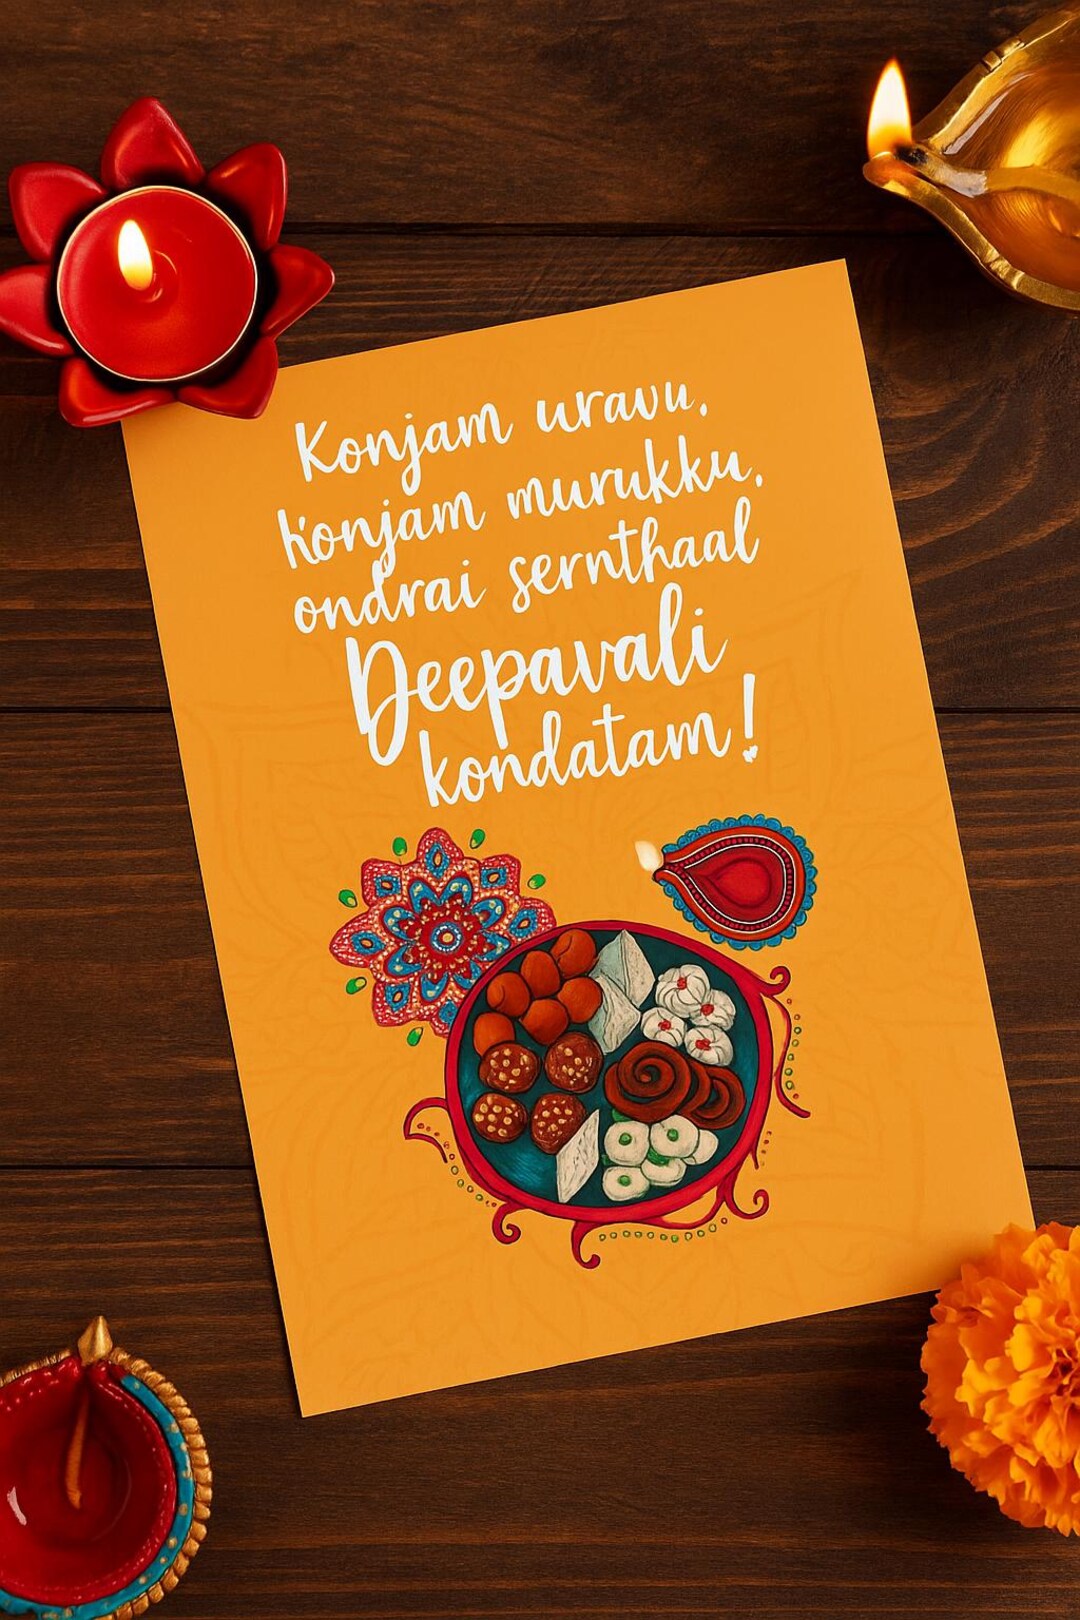 Konjam uravu,
konjam murukku,
ondrai sernthaal
Deepavali
kondatam!